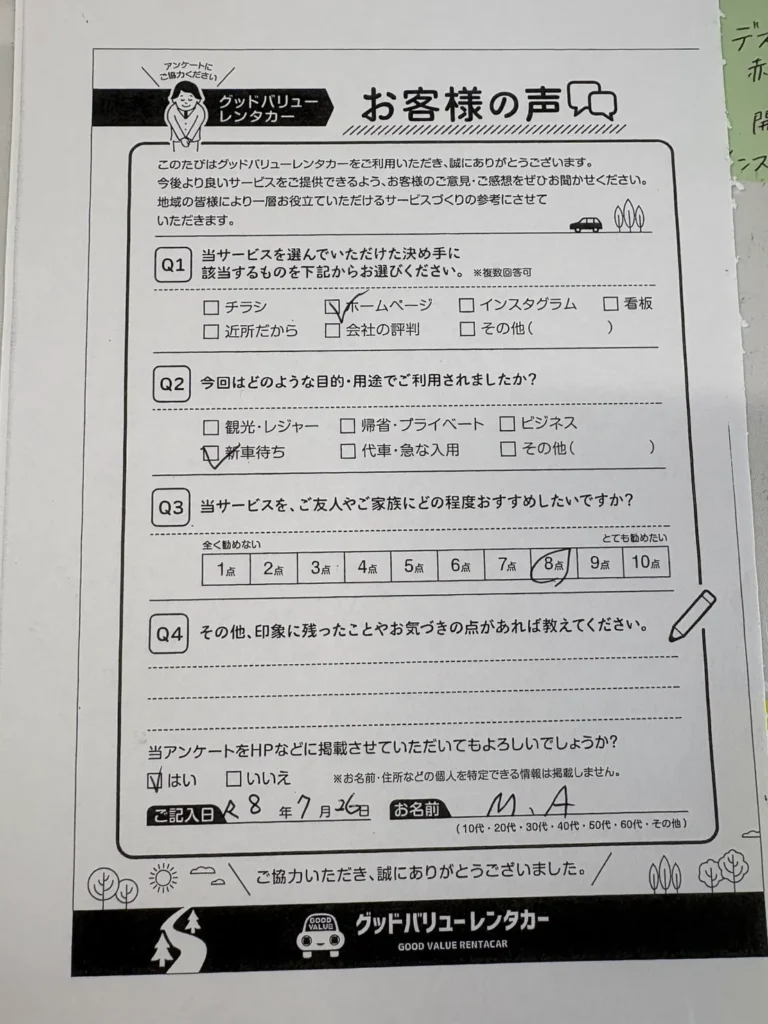 アンケートに
ご協力ください
グッドバリュー
レンタカー
お客様の声
このたびはグッドバリューレンタカーをご利用いただき、誠にありがとうございます。
今後より良いサービスをご提供できるよう、お客様のご意見・ご感想をぜひお聞かせください。
地域の皆様により一層お役立ていただけるサービスづくりの参考にさせて
いただきます。
Q1 当サービスを選んでいただけた決め手に
該当するものを下記からお選びください。 ※複数回答可
□ チラシ ☑ ホームページ □ インスタグラム □ 看板
□ 近所だから □ 会社の評判 □ その他( )
Q2 今回はどのような目的・用途でご利用されましたか?
□ 観光・レジャー □ 帰省・プライベート □ ビジネス
☑ 新車待ち □ 代車・急な入用 □ その他( )
Q3 当サービスを、ご友人やご家族にどの程度おすすめしたいですか?
全く勧めない とても勧めたい
1点 2点 3点 4点 5点 6点 7点 8点 9点 10点
Q4 その他、印象に残ったことやお気づきの点があれば教えてください。
当アンケートをHPなどに掲載させていただいてもよろしいでしょうか?
☑ はい □ いいえ ※お名前・住所などの個人を特定できる情報は掲載しません。
ご記入日 R8年7月26日 お名前 M.A
(10代・20代・30代・40代・50代・60代・その他)
ご協力いただき、誠にありがとうございました。
GOOD VALUE
グッドバリューレンタカー
GOOD VALUE RENTACAR
デス
赤
開
ンス